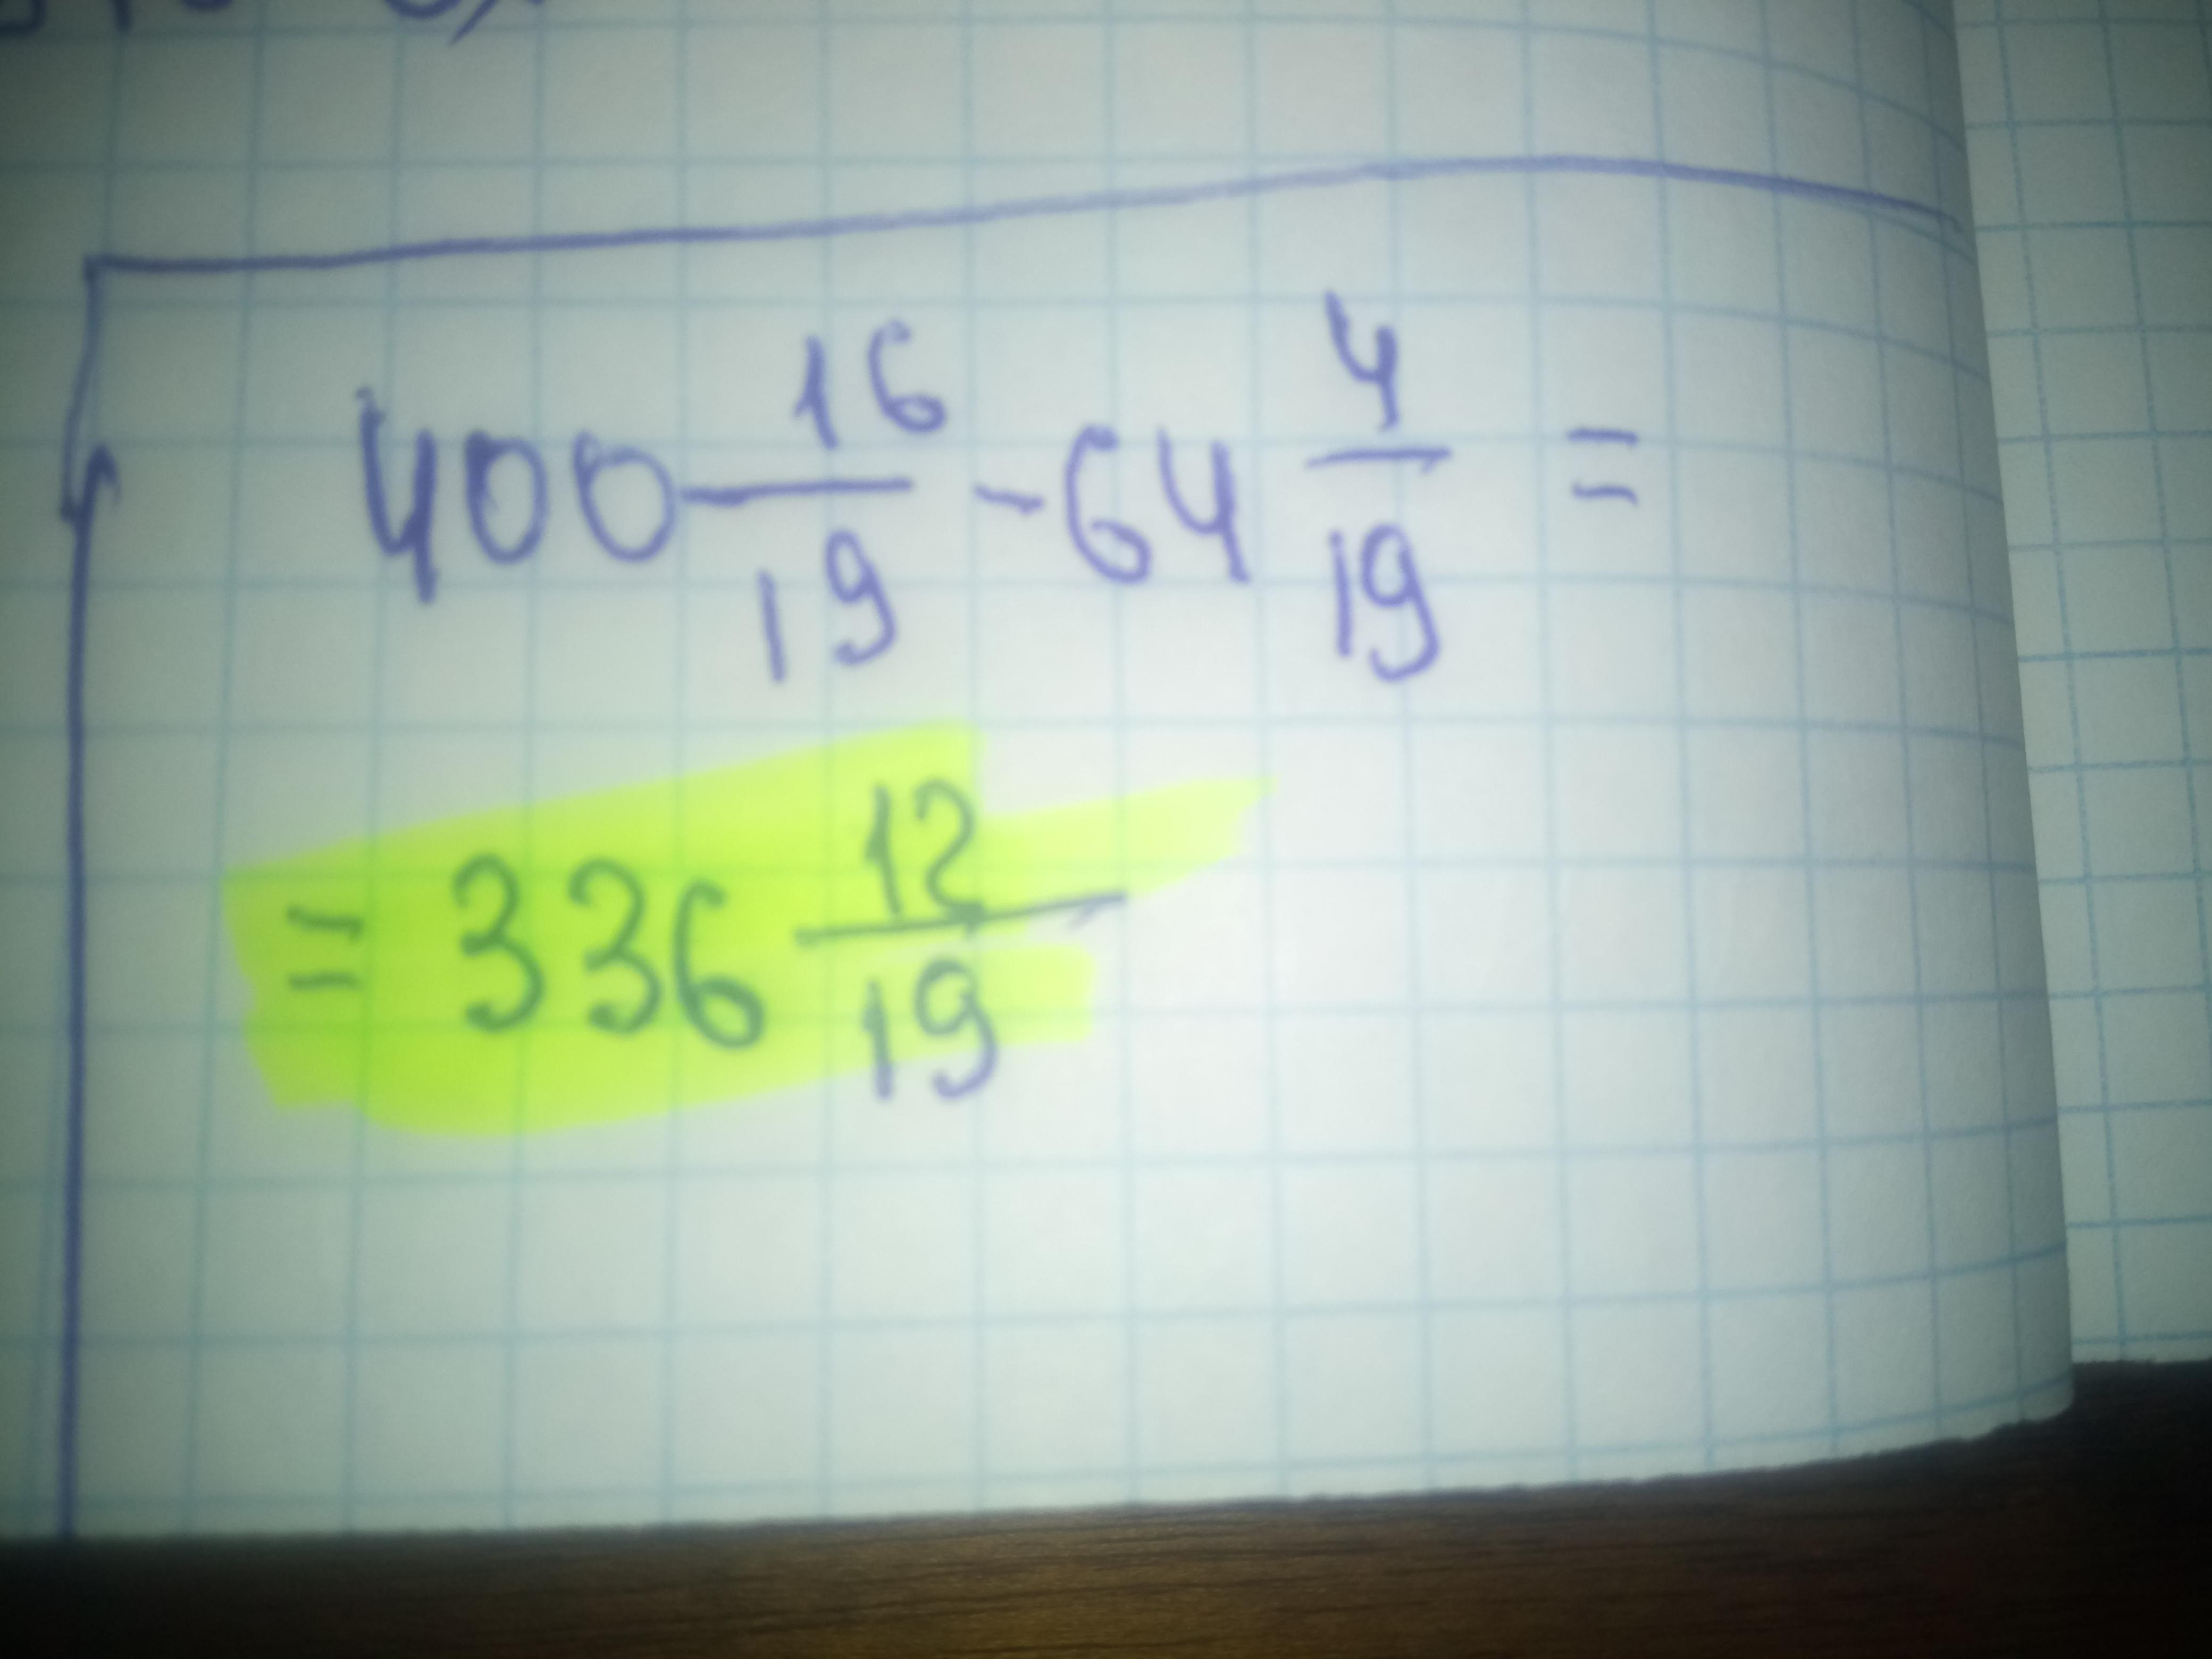 400 16/19 - 64 4/19 =
= 336 12/19